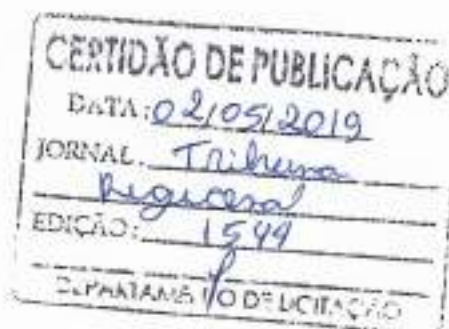 CERTIDÃO DE PUBLICAÇÃO
DATA: 02/05/2019
JORNAL: Tribuna
Regional
EDIÇÃO: 1549
DEPARTAMENTO DE LICITAÇÃO